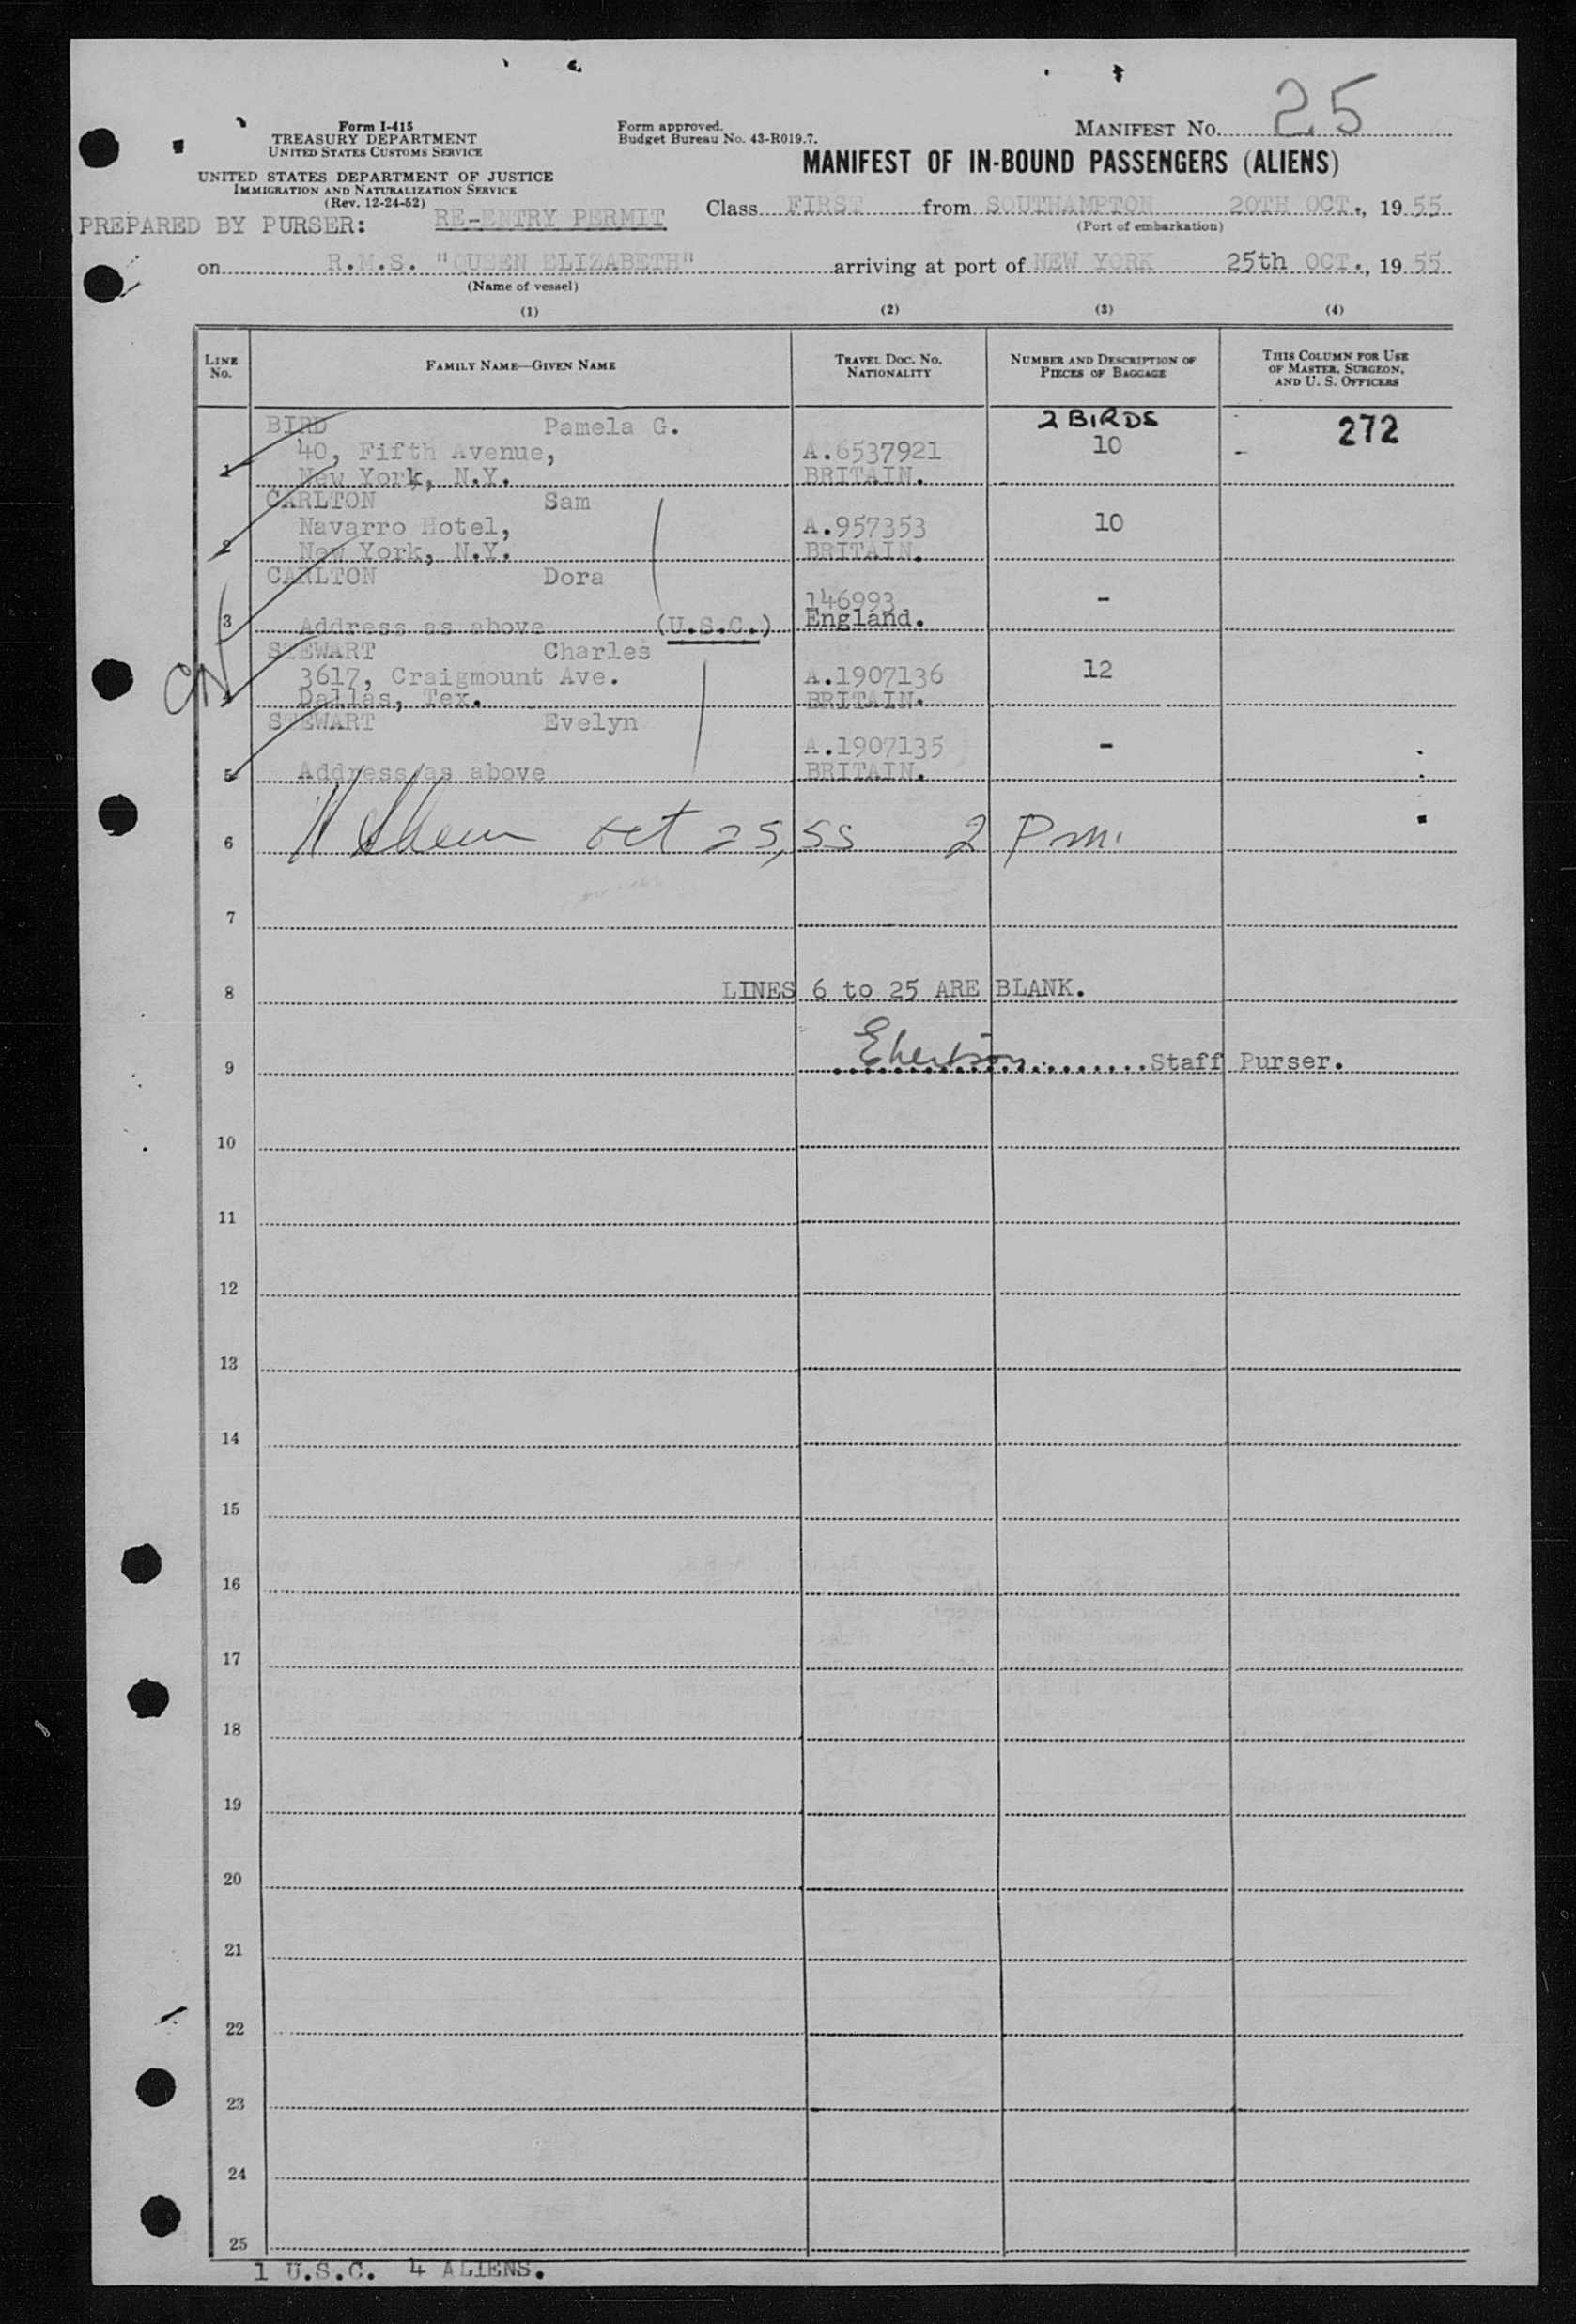 25
Form I-415
TREASURY DEPARTMENT
UNITED STATES CUSTOMS SERVICE
UNITED STATES DEPARTMENT OF JUSTICE
IMMIGRATION AND NATURALIZATION SERVICE
(Rev. 12-24-52)
Form approved.
Budget Bureau No. 43-R019.7.
MANIFEST No.
MANIFEST OF IN-BOUND PASSENGERS (ALIENS)
PREPARED BY PURSER: RE-ENTRY PERMIT
Class FIRST from SOUTHAMPTON 20TH OCT., 1955
(Port of embarkation)
on R.M.S. "QUEEN ELIZABETH" arriving at port of NEW YORK 25th OCT., 1955
(Name of vessel)
(1) (2) (3) (4)
LINE No. FAMILY NAME—GIVEN NAME TRAVEL DOC. NO. NATIONALITY NUMBER AND DESCRIPTION OF PIECES OF BAGGAGE THIS COLUMN FOR USE OF MASTER, SURGEON, AND U. S. OFFICERS
BIRD Pamela G. 2 BIRDS 272
40, Fifth Avenue, A.6537921 10 -
1 New York, N.Y. BRITAIN.
CARLTON Sam
Navarro Hotel, A.957353 10
2 New York, N.Y. BRITAIN.
CARLTON Dora
146993 -
3 Address as above (U.S.C.) England.
STEWART Charles
3617, Craigmount Ave. A.1907136 12
4 Dallas, Tex. BRITAIN.
STEWART Evelyn
A.1907135 -
5 Address as above BRITAIN.
6 Oct 25, 55 2 Pm.
7
8 LINES 6 to 25 ARE BLANK.
9 Staff Purser.
10
11
12
13
14
15
16
17
18
19
20
21
22
23
24
25
1 U.S.C. 4 ALIENS.